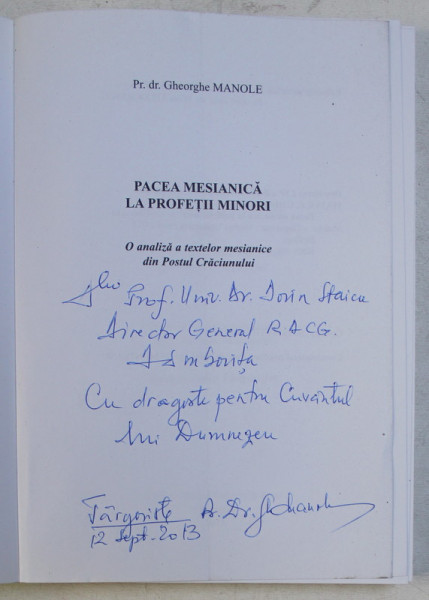 Pr. dr. Gheorghe MANOLE
PACEA MESIANICĂ
LA PROFEȚII MINORI
O analiză a textelor mesianice
din Postul Crăciunului
Prof. Univ. Dr. Dorin Staicu
Director General R.A.C.G.
Dâmbovița
Cu dragoste pentru Cuvântul
lui Dumnezeu
Târgoviște Pr. Dr.
12 Sept. 2013